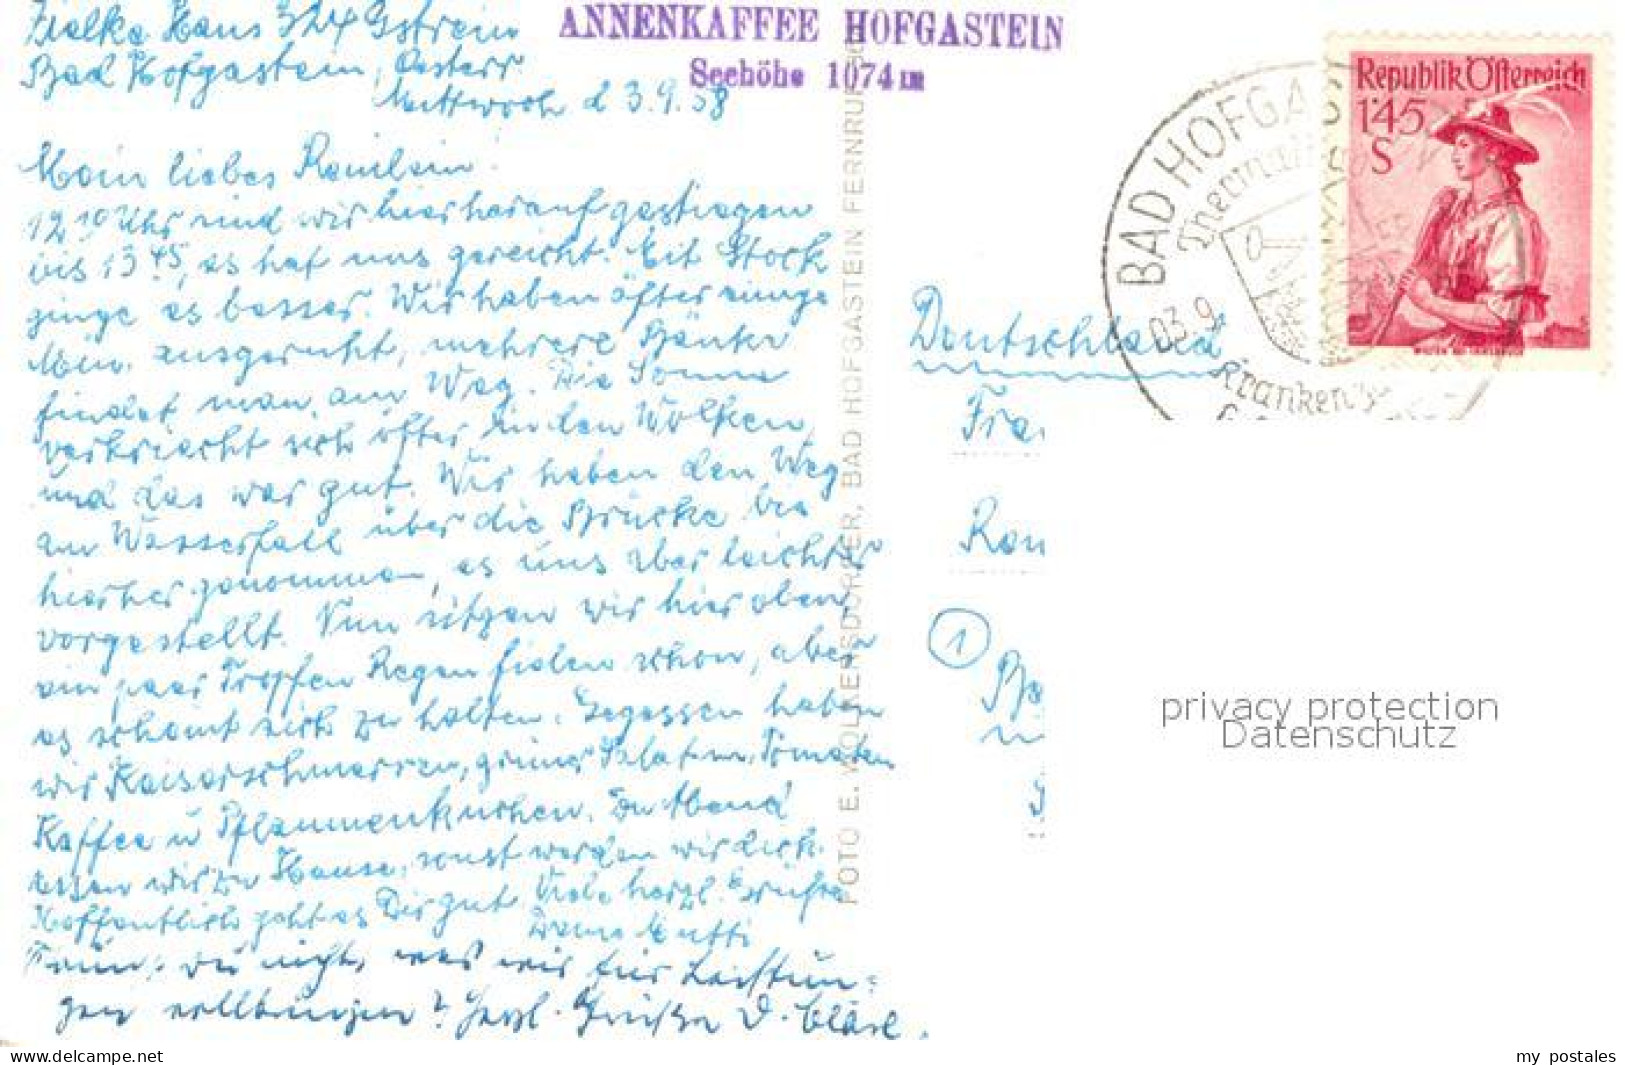 Zielke Haus 324 Gstrein
Bad Hofgastein, Österr.
Mittwoch d 3.9.58
ANNENKAFFEE HOFGASTEIN
Seehöhe 1074 m
Mein liebes
12 10 Uhr sind wir hier herauf gestiegen
bis 13 45, es hat uns gereicht. Mit Stock
ginge es besser. Wir haben öfter einige
Min. ausgeruht, mehrere Bänke
findet man am Weg. Die Sonne
verkriecht sich öfter in den Wolken,
und das war gut. Wir haben den Weg
am Wasserfall über die Brücke bis
hierher genommen, es uns aber leichter
vorgestellt. Nun sitzen wir hier oben,
ein paar Tropfen Regen fielen schon, aber
es scheint sich zu halten. Gegessen haben
wir Kaiserschmarren, grüner Salat m. Tomaten
Kaffee u Pflaumenkuchen. Zu Abend
essen wir zu Hause, sonst werden wir dick.
Hoffentlich geht es Dir gut. Viele herzl. Grüsse
Deine Mutti
nicht, was wir für Leistun-
gen vollbringen? Herzl. Grüße D.
FOTO E. WOLKERSDORFER, BAD HOFGASTEIN FERNRUF
BAD HOFGA
Thermal
03.9
Kranken
Republik Österreich
1'45
S
Deutschland
1
privacy protection
Datenschutz
www.delcampe.net
my_postales